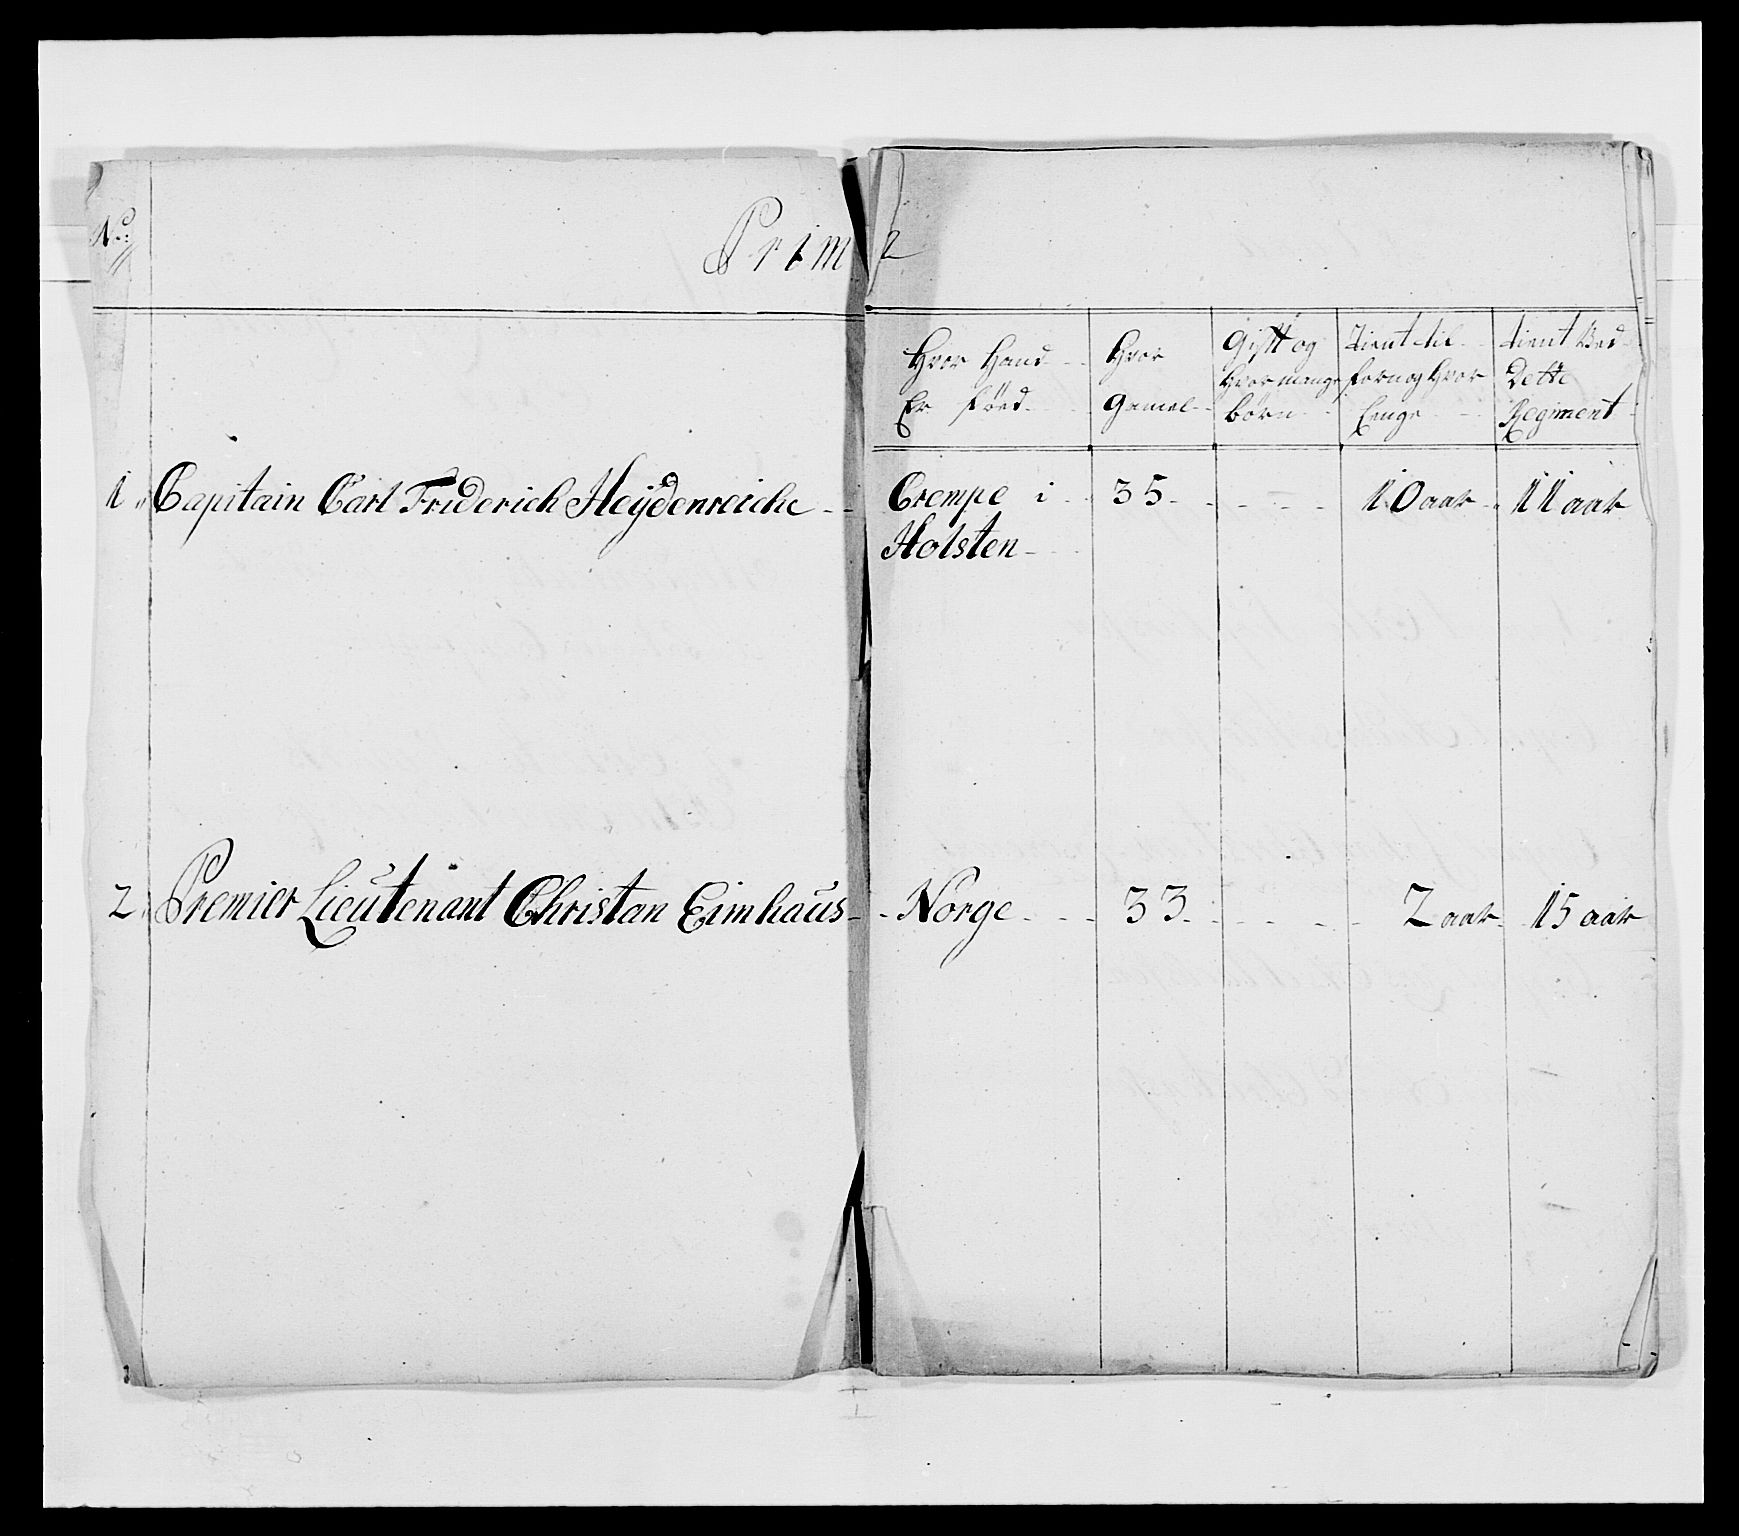 No:
Prima
Hvor Hand Er føed
Hvor Gamel
Gift og Hvor mange børn
Tient til forn og Hvor Lenge
tient Ved Dette Regiment
1 Capitain Carl Friderich Heÿdenreiche - - Crempe i 35 - - - - 10 aar - 11 aar
Holsten
2 Premier Lieutenant Christan Eimhaus - - Norge - - - 33 - - - - 2 aar - 15 aar